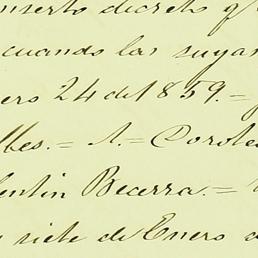 inserto decreto q
cuando las suyas
ero 24 de 1859. =
lles. = A. = Corole
lentin Becerra. =
siete de Enero